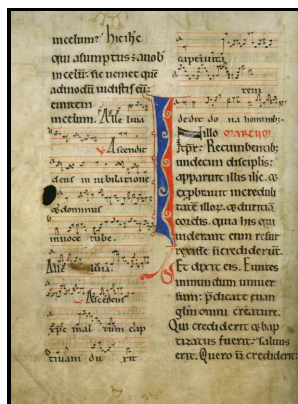 in celum? hic ihc
qui asumptus ē a uob
in celū: sic veniet quē
admodū uidistis eū:
euntem
in celum. Alle luia
Ascendit
deus in iubilatione
& dominus
in uoce tube.
Alle luia.
Ascendens
xp̄c in al tum cap
tiuam du xit
captiuita
tem
dedit do na hominib:
In illo MARCUM
tp̄r: Recumbentib;
undecim discipľis:
apparuit illis ihc. &
exp̄brauit incredulí
tatē illor̄. & duritiā
cordis. quia his qui
uiderant eum resur
rexisse n̄ crediderūt.
Et dixit eis. Euntes
in mundum uniuer
sum: p̄dicate euan
glm omni creature.
Qui crediderit & bap
tizatus fuerit: saluus
erit. Qui uero n̄ crediderit: